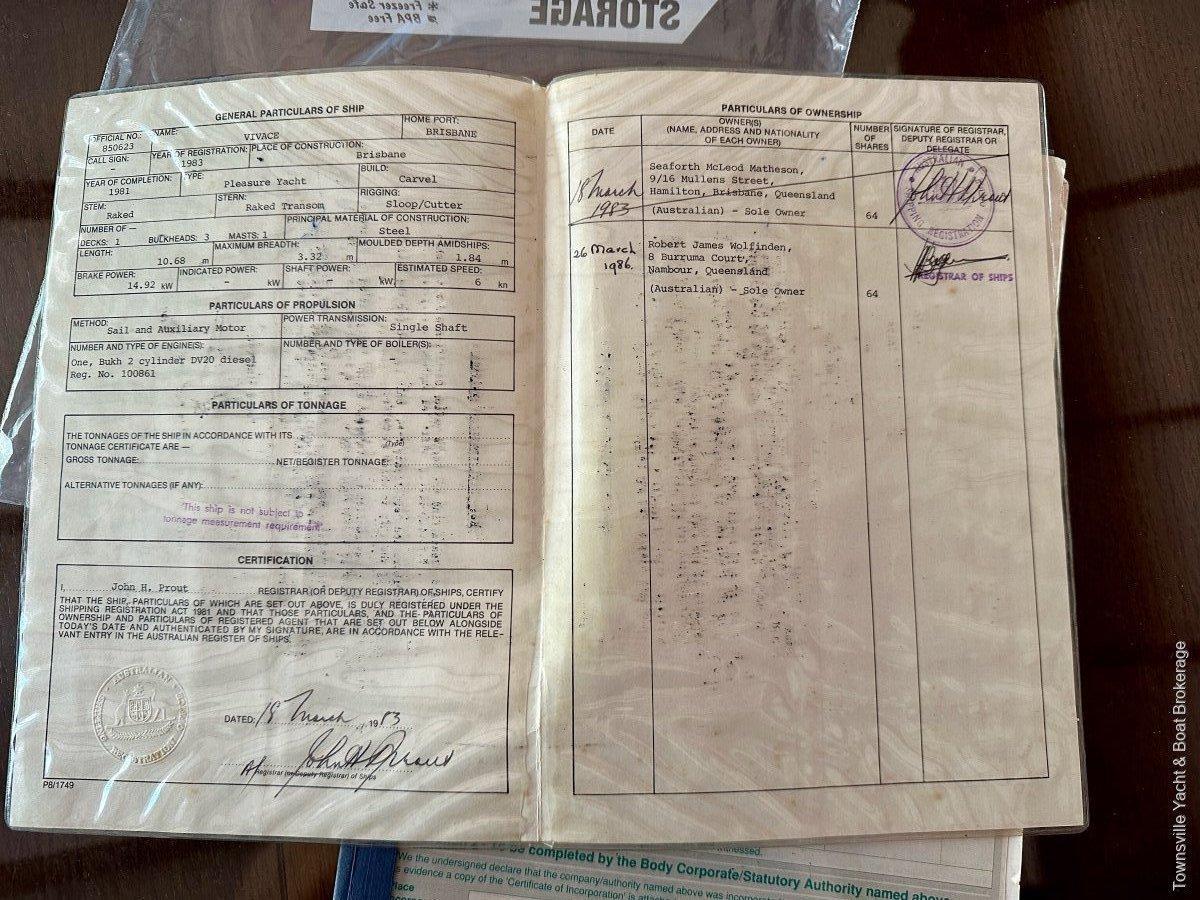 STORAGE
* Freezer Safe
BPA Free
GENERAL PARTICULARS OF SHIP
OFFICIAL NO.: NAME: HOME PORT:
850623 VIVACE BRISBANE
CALL SIGN: YEAR OF REGISTRATION: PLACE OF CONSTRUCTION:
- 1983 Brisbane
YEAR OF COMPLETION: TYPE: BUILD:
1981 Pleasure Yacht Carvel
STEM: STERN: RIGGING:
Raked Raked Transom Sloop/Cutter
NUMBER OF — PRINCIPAL MATERIAL OF CONSTRUCTION:
DECKS: 1 BULKHEADS: 3 MASTS: 1 Steel
LENGTH: MAXIMUM BREADTH: MOULDED DEPTH AMIDSHIPS:
10.68 m 3.32 m 1.84 m
BRAKE POWER: INDICATED POWER: SHAFT POWER: ESTIMATED SPEED:
14.92 kW - kW - kW 6 kn
PARTICULARS OF PROPULSION
METHOD: POWER TRANSMISSION:
Sail and Auxiliary Motor Single Shaft
NUMBER AND TYPE OF ENGINE(S): NUMBER AND TYPE OF BOILER(S):
One, Bukh 2 cylinder DV20 diesel -
Reg. No. 100861
PARTICULARS OF TONNAGE
THE TONNAGES OF THE SHIP IN ACCORDANCE WITH ITS
(Type)
TONNAGE CERTIFICATE ARE —
GROSS TONNAGE: NET/REGISTER TONNAGE:
ALTERNATIVE TONNAGES (IF ANY):
This ship is not subject to
tonnage measurement requirement
CERTIFICATION
I, John H. Prout REGISTRAR (OR DEPUTY REGISTRAR) OF SHIPS, CERTIFY
THAT THE SHIP, PARTICULARS OF WHICH ARE SET OUT ABOVE, IS DULY REGISTERED UNDER THE
SHIPPING REGISTRATION ACT 1981 AND THAT THOSE PARTICULARS, AND THE PARTICULARS OF
OWNERSHIP AND PARTICULARS OF REGISTERED AGENT THAT ARE SET OUT BELOW ALONGSIDE
TODAY'S DATE AND AUTHENTICATED BY MY SIGNATURE, ARE IN ACCORDANCE WITH THE RELE-
VANT ENTRY IN THE AUSTRALIAN REGISTER OF SHIPS.
AUSTRALIAN
REGISTRATION
DATED: 18 March 1983
John H Prout
Registrar (or Deputy Registrar) of Ships
P8/1749
PARTICULARS OF OWNERSHIP
DATE OWNER(S) NUMBER SIGNATURE OF REGISTRAR,
(NAME, ADDRESS AND NATIONALITY OF DEPUTY REGISTRAR OR
OF EACH OWNER) SHARES DELEGATE
AUSTRALIAN
SHIPPING REGISTRATION
John H Prout
18 March
1983
Seaforth McLeod Matheson,
9/16 Mullens Street,
Hamilton, Brisbane, Queensland
(Australian) - Sole Owner 64
26 March
1986.
Robert James Wolfinden,
8 Burruma Court,
Nambour, Queensland
REGISTRAR OF SHIPS
(Australian) - Sole Owner 64
witnessed.
To be completed by the Body Corporate/Statutory Authority named above
We the undersigned declare that the company/authority named above was incorporated
evidence a copy of the 'Certificate of Incorporation' is
Place
Townsville Yacht & Boat Brokerage